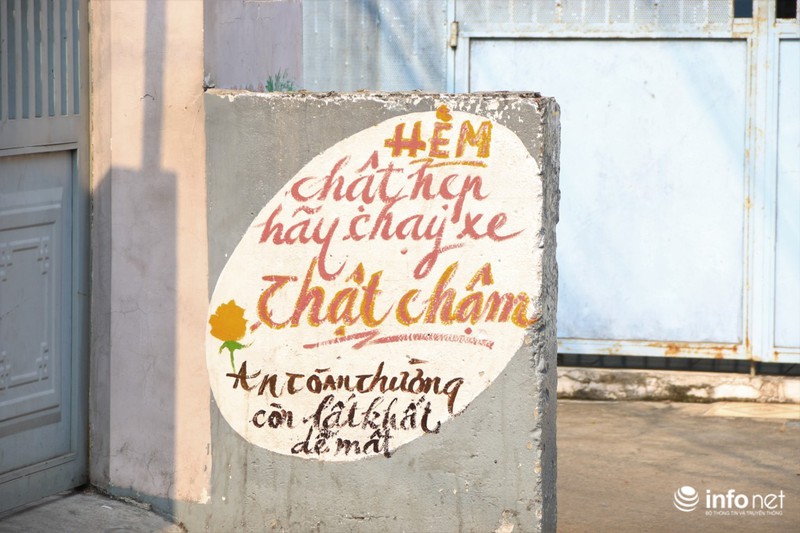 HẺM
chật hẹp
hãy chạy xe
Thật chậm
An toàn thường
còn lất khất
dễ mất
infonet
BỘ THÔNG TIN VÀ TRUYỀN THÔNG